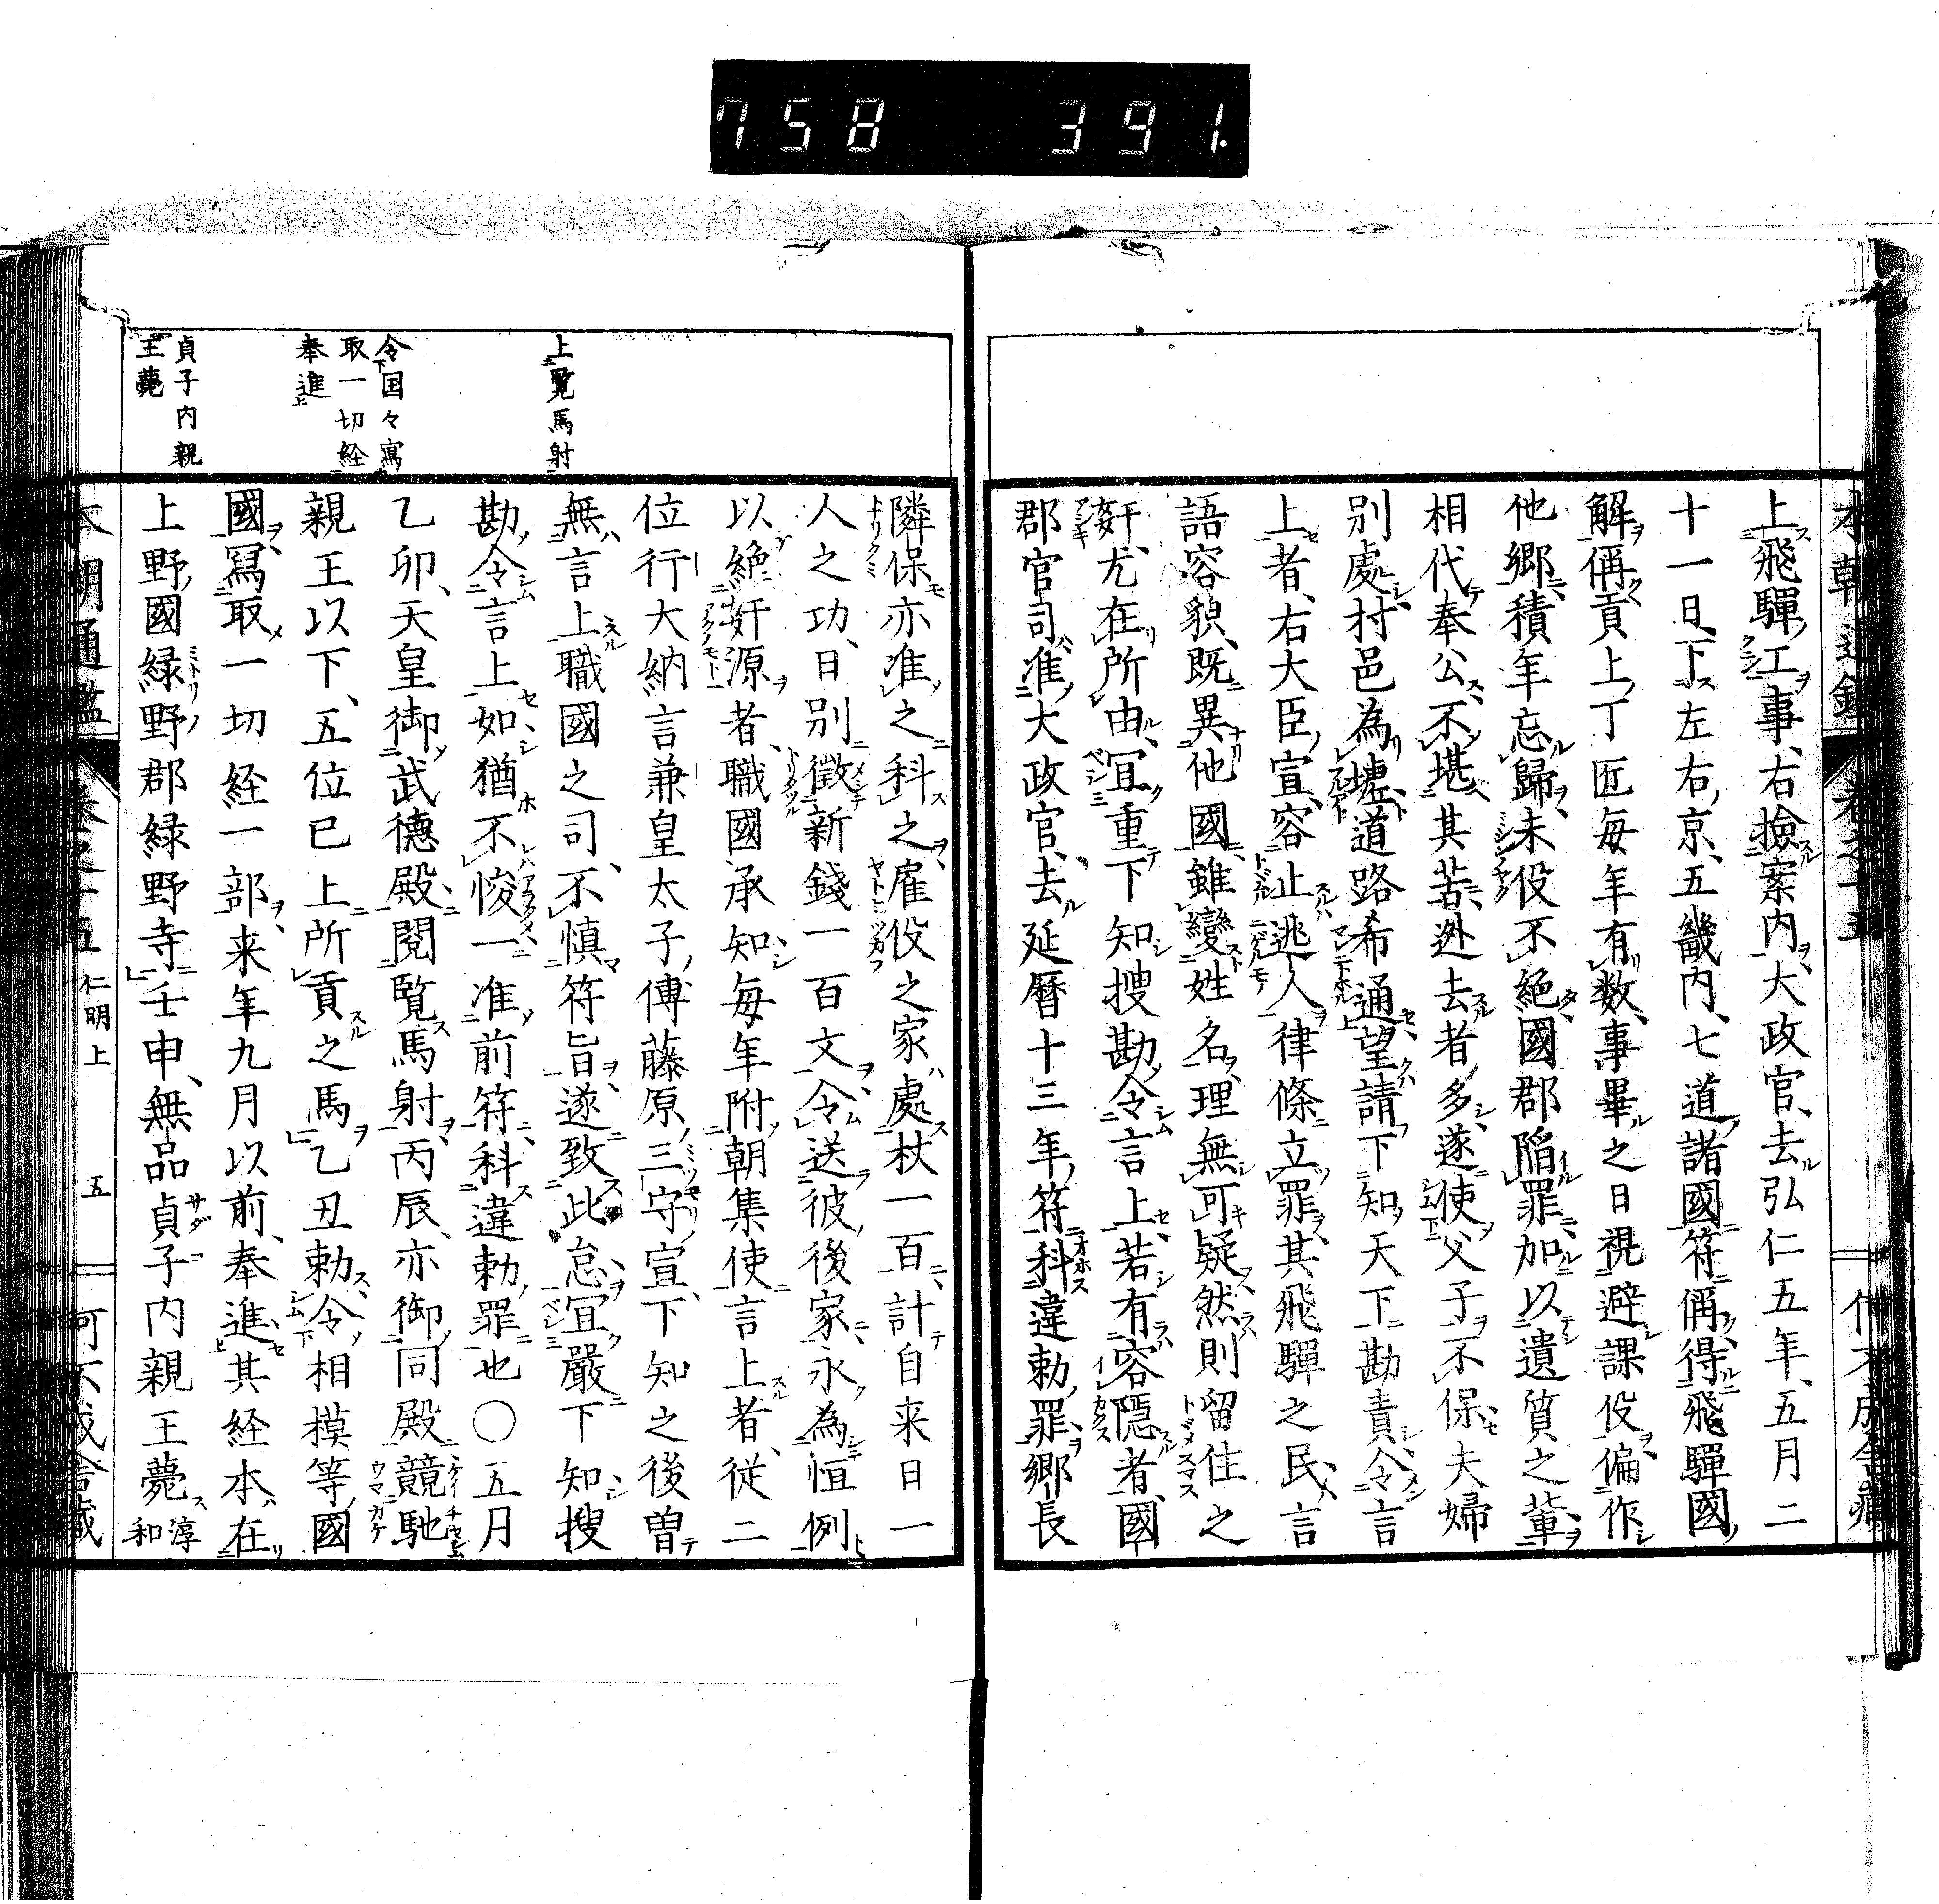 758 391.
上飛騨工事、右撿案内、大政官、去弘仁五年、五月二
十一日、下左右京、五畿内、七道諸國符偁、得飛騨國
解偁、貢上丁匠每年有数、事畢之日視避課役、偏作
他鄉、積年忘歸、未役不絕、國郡陷罪、加以遺質之輩、
相代奉公、不堪其苦、迯去者多、遂使父子不保、夫婦
別處、村邑為墟、道路希通、望請下知天下勘責、令言
上者、右大臣宣、容止逃人、律條立罪、其飛騨之民、言
語容貌、既異他國、雖變姓名、理無可疑、然則留住之
奸、尤在所由、宜重下知搜勘、令言上、若有容隱者、國
郡官司、准大政官、去延曆十三年符、科違勅罪、鄉長
上覽馬射
令国々寫
取一切経
奉進
貞子内親
王薨
隣保亦准之科之、雇役之家、處杖一百、計自来日一
人之功、日別徵新錢一百文、令送彼後家、永為恒例
以絶奸源者、職國承知、每年附朝集使言上者、従二
位行大納言兼皇太子傅藤原三守宣、下知之後、曽
無言上職國之司、不慎符旨、遂致此怠、宜嚴下知搜
勘、令言上、如猶不悛、一准前符、科違勅罪也〇五月
乙卯、天皇御武德殿、閲覧馬射、丙辰、亦御同殿、競馳
親王以下、五位已上所貢之馬、乙丑勅、令相模等國
國、寫取一切経一部、来年九月以前、奉進、其経本、在
上野國緑野郡緑野寺、壬申、無品貞子内親王薨淳和
本朝通鑑 卷之十五 仁明上 五